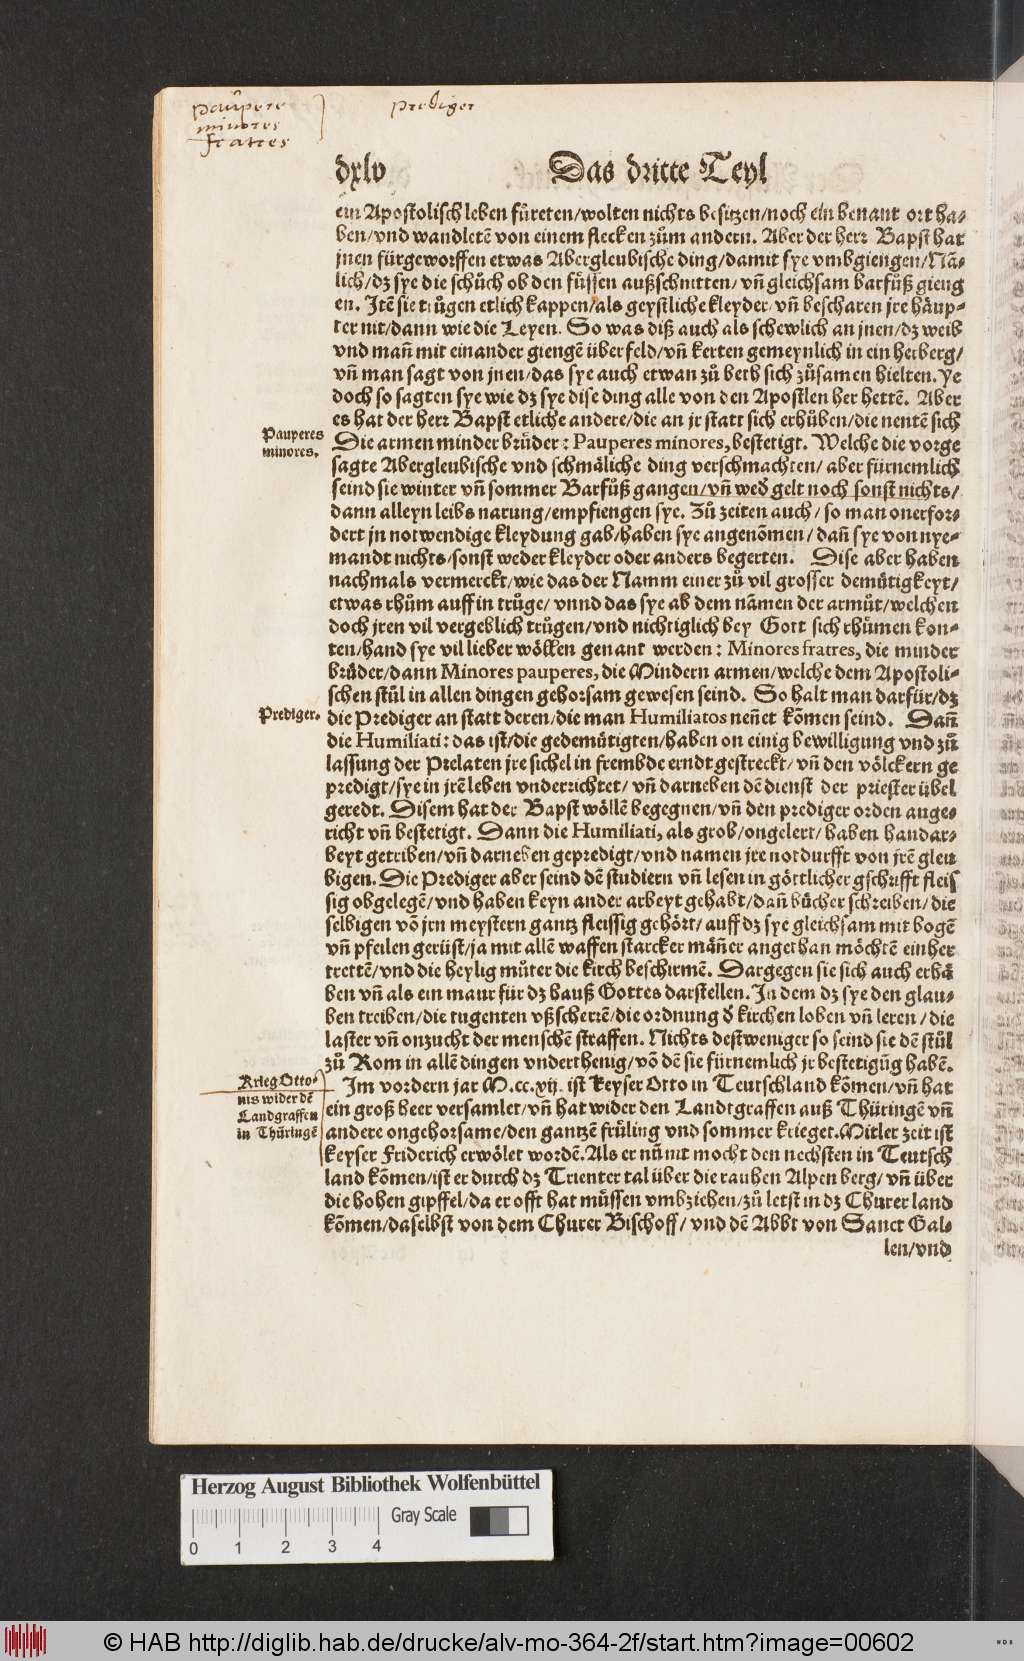 paupere
minores
fratres
prediger
dxlv Das dritte Teyl
ein Apostolisch leben fůreten/wolten nichts besitzen/noch ein benant ort ha-
ben/vnd wandletẽ von einem flecken zům andern. Aber der herr Bapst hat
jnen fürgeworffen etwas Abergleubische ding/damit sye vmbgiengen/Nã-
lich/dz sye die schůch ob den fůssen außschnitten/vñ gleichsam barfůß gieng
en. Itẽ sie trůgen etlich kappen/als geystliche kleyder/vñ bescharen jre häup-
ter nit/dann wie die Leyen. So was diß auch als schewlich an jnen/dz weib
vnd mañ mit einander giengẽ über feld/vñ kerten gemeynlich in ein herberg/
vñ man sagt von jnen/das sye auch etwan zů beth sich zůsamen hielten. Ye
doch so sagten sye wie dz sye dise ding alle von den Apostlen her hettẽ. Aber
es hat der herr Bapst etliche andere/die an jr statt sich erhůben/die nentẽ sich
Pauperes
minores.
Die armen minder brůder: Pauperes minores, bestetigt. Welche die vorge
sagte Abergleubische vnd schmäliche ding verschmachten/ aber fürnemlich
seind sie winter vñ sommer Barfůß gangen/vñ wed̕ gelt noch sonst nichts/
dann alleyn leibs narung/empfiengen sye. Zů zeiten auch/ so man onerfor-
dert jn notwendige kleydung gab/haben sye angenõmen/ dañ sye von nye-
mandt nichts/sonst weder kleyder oder anders begerten. Dise aber haben
nachmals vermerckt/wie das der Namm einer zů vil grosser demůtigkeyt/
etwas rhům auff in trůge/ vnnd das sye ab dem nãmen der armůt/welchen
doch jren vil vergeblich trůgen/vnd nichtiglich bey Gott sich rhůmen kon-
ten/hand sye vil lieber wöllen genant werden: Minores fratres, die minder
brůder/dann Minores pauperes, die Mindern armen/welche dem Apostoli-
schen stůl in allen dingen gehorsam gewesen seind. So halt man darfür/dz
Prediger.
die Prediger an statt deren/die man Humiliatos neñet kõmen seind. Dañ
die Humiliati: das ist/die gedemůtigten/haben on einig bewilligung vnd zů
lassung der Prelaten jre sichel in frembde erndt gestreckt/ vñ den völckern ge
predigt/sye in jrẽ leben vnderrichtet/ vñ darneben dẽ dienst der priester übel
geredt. Disem hat der Bapst wöllẽ begegnen/vñ den prediger orden ange-
richt vñ bestetigt. Dann die Humiliati, als grob/ongelert/ haben handar-
beyt getriben/vñ darneben gepredigt/vnd namen jre notdurfft von jrẽ gleu
bigen. Die Prediger aber seind dẽ studiern vñ lesen in göttlicher gschrifft fleis
sig obgelegẽ/vnd haben keyn ander arbeyt gehabt/dañ bůcher schreiben/die
selbigen võ jrn meystern gantz fleissig gehört/ auff dz sye gleichsam mit bogẽ
vñ pfeilen gerüst/ja mit allẽ waffen starcker mäñer angethan möchtẽ einher
trettẽ/vnd die heylig můter die kirch beschirmẽ. Dargegen sie sich auch erhä
ben vñ als ein maur für dz hauß Gottes darstellen. In dem dz sye den glau-
ben treiben/die tugenten vßscheriẽ/die ordnung d̕ kirchen loben vñ leren/die
laster vñ onzucht der menschẽ straffen. Nichts destweniger so seind sie dẽ stůl
zů Rom in allẽ dingen vnderthenig/võ dẽ sie fürnemlich jr bestetigũg habẽ.
Krieg Otto-
nis wider dẽ
Landgraffen
in Thüringẽ
Im vordern jar M.cc.xij. ist Keyser Otto in Teutschland kõmen/vñ hat
ein groß heer versamlet/vñ hat wider den Landtgraffen auß Thüringẽ vñ
andere ongehorsame/den gantzẽ früling vnd sommer krieget. Mitler zeit ist
keyser Friderich erwölet wordẽ. Als er nũ nit mocht den nechsten in Teutsch
land kõmen/ist er durch dz Trienter tal über die rauhen Alpen berg/ vñ über
die hohen gipffel/da er offt hat müssen vmbziehen/zů letst in dz Churer land
kõmen/daselbst von dem Churer Bischoff/ vnd dẽ Abbt von Sanct Gal-
len/vnd
Herzog August Bibliothek Wolfenbüttel
Gray Scale
0 1 2 3 4
© HAB http://diglib.hab.de/drucke/alv-mo-364-2f/start.htm?image=00602